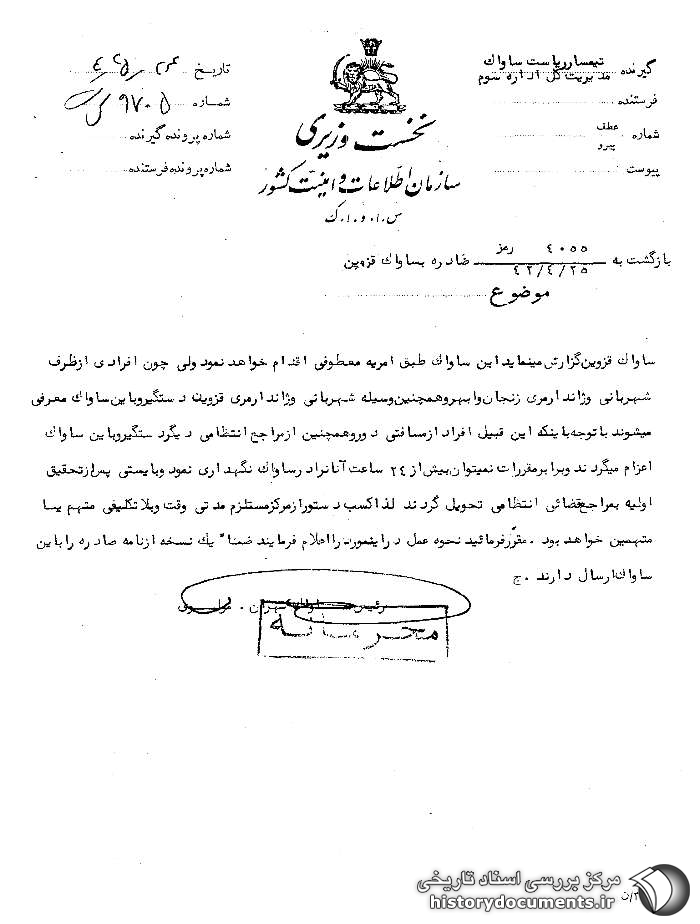 گیرنده تیمسار ریاست ساواک
مدیریت کل اداره سوم
فرستنده
شماره عطف
پیرو
پیوست
نخست وزیری
سازمان اطلاعات و امنیت کشور
س.ا.و.ا.ک
تاریخ
شماره ۹۷۰۵
شماره پرونده گیرنده
شماره پرونده فرستنده
بازگشت به ۴۰۵۵ رمز صادره بساواک قزوین
۴۲/۴/۲۵
موضوع
ساواک قزوین گزارش مینماید این ساواک طبق امریه معطوفی اقدام خواهد نمود ولی چون افرادی از طرف
شهربانی وژاندارمری زنجان وابهر وهمچنین وسیله شهربانی وژاندارمری قزوین دستگیر وباین ساواک معرفی
میشوند با توجه باینکه این قبیل افراد از مسافتی دور وهمچنین از مراجع انتظامی دیگر دستگیر وباین ساواک
اعزام میگردند وبرابر مقررات نمیتوان بیش از ۲۴ ساعت آنانرا در ساواک نگهداری نمود وبایستی پس از تحقیق
اولیه بمراجع قضائی انتظامی تحویل گردند لذا کسب دستور از مرکز مستلزم مدتی وقت وبلاتکلیفی متهم یا
متهمین خواهد بود . مقرّر فرمائید نحوه عمل در اینمورد را اعلام فرمایند ضمناً یک نسخه از نامه صادره را باین
ساواک ارسال دارند . ج
رئیس ساواک تهران .
محرمانه
مرکز بررسی اسناد تاریخی
historydocuments.ir